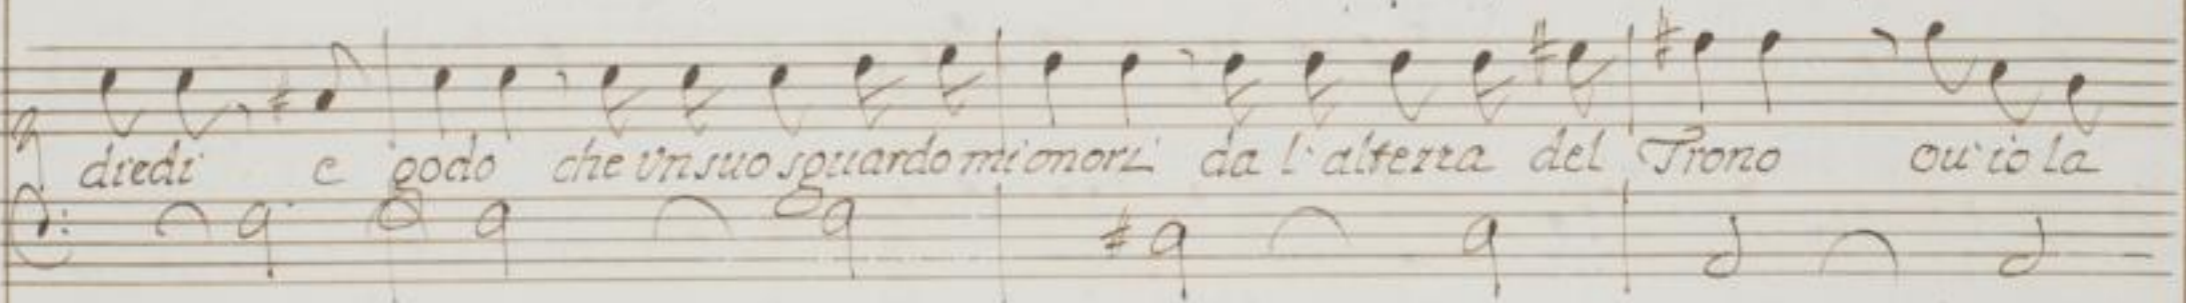 diedi e godo che vn suo sguardo mi onori da l'altezza del Trono ou' io la